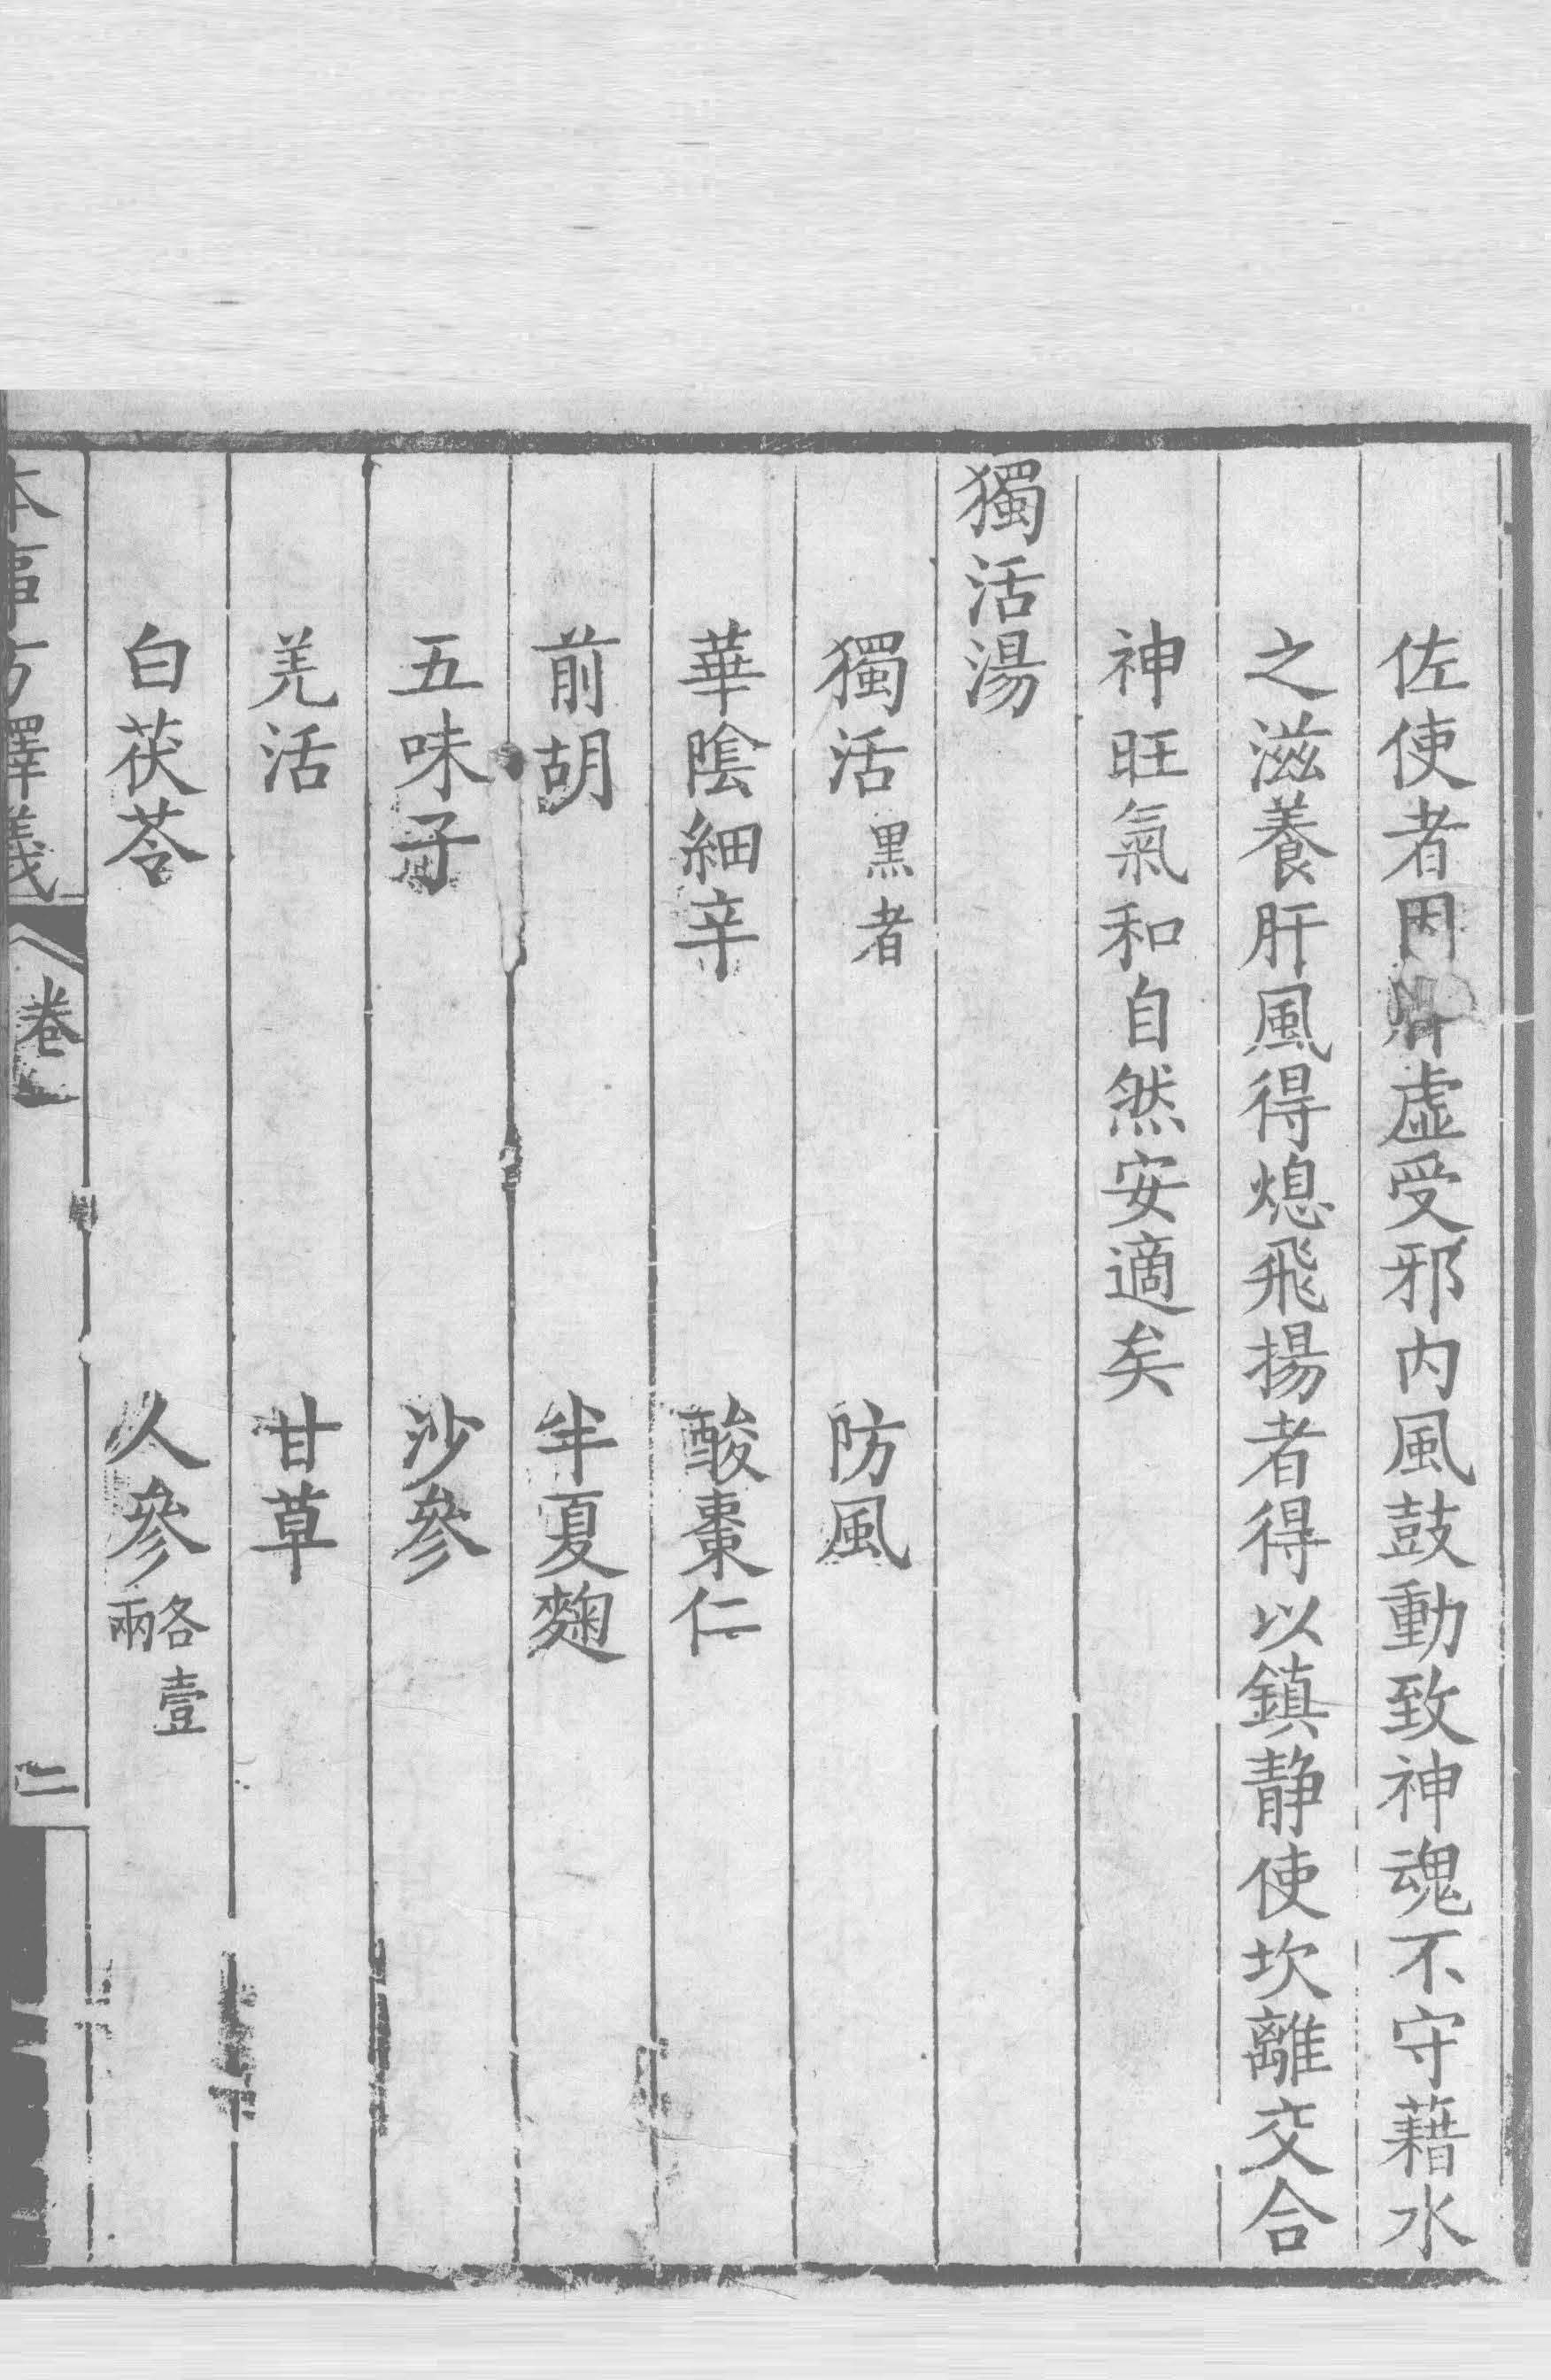 佐使者因肝虛受邪内風鼓動致神魂不守藉水
之滋養肝風得熄飛揚者得以鎮静使坎離交合
神旺氣和自然安適矣
獨活湯
獨活黒者　防風
華陰細辛　酸棗仁
前胡　半夏麴
五味子　沙參
羌活　甘草
白茯苓　人參各壹兩
本事方釋義　卷一　二